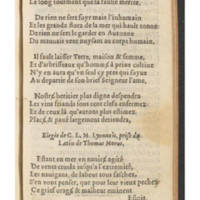 Le long tourment que la faulte merite.
De rien ne sert fuyr main l'inhumain
Et les grands flotz de la mer qui haulte tonne
De rien ne sert le garder en Automne
Du mauvais vent nuysant au corps humain.
Il fault laisser Terre, maison & femme,
Et d'arbrisseaux qu'homme à peine cultive
N'y en aura qu'un seul qui te suyve
Au departir de son brief Seigneur l'ame.
Nostre heritier plus digne despendra
Les vins frians sont cent clefz enfermez
Et de ceux là qui sont plus estimez
Place, & pavé largement
Elegie de C. L. M. Lyonnois, prise du
Latin de Thomas Morus.
Estant en mer en navire agité
De vents cruelz jusqu'à l'extremité,
Les navigans, de labour tous
S'en vont penser, que pour leur vieux peché
Ce grief orage & maleur eminent
Estoit